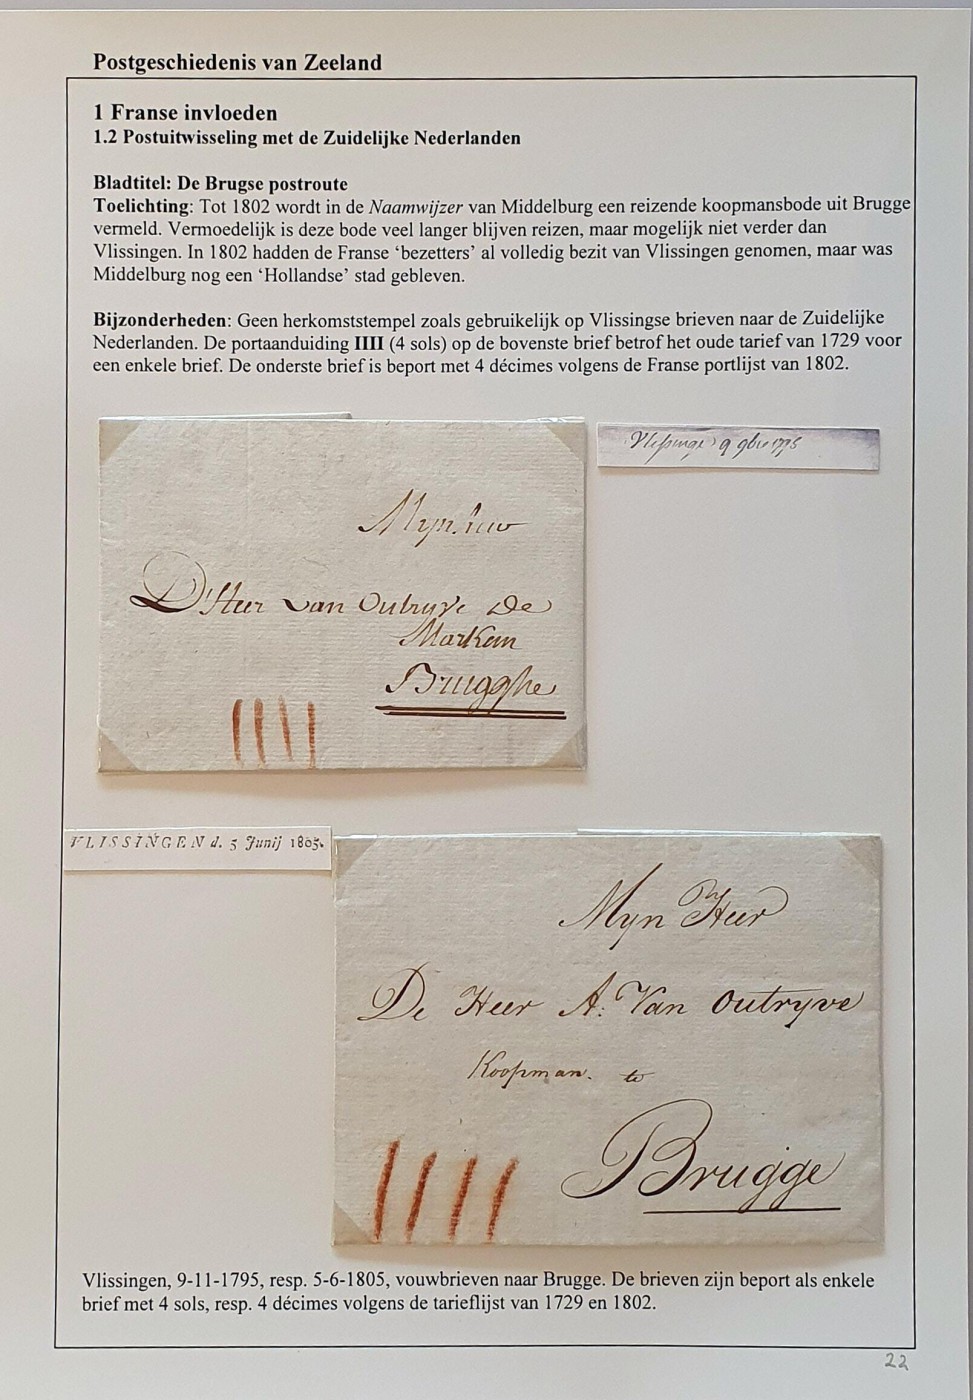 Postgeschiedenis van Zeeland
1 Franse invloeden
1.2 Postuitwisseling met de Zuidelijke Nederlanden
Bladtitel: De Brugse postroute
Toelichting: Tot 1802 wordt in de Naamwijzer van Middelburg een reizende koopmansbode uit Brugge
vermeld. Vermoedelijk is deze bode veel langer blijven reizen, maar mogelijk niet verder dan
Vlissingen. In 1802 hadden de Franse ‘bezetters’ al volledig bezit van Vlissingen genomen, maar was
Middelburg nog een ‘Hollandse’ stad gebleven.
Bijzonderheden: Geen herkomststempel zoals gebruikelijk op Vlissingse brieven naar de Zuidelijke
Nederlanden. De portaanduiding IIII (4 sols) op de bovenste brief betrof het oude tarief van 1729 voor
een enkele brief. De onderste brief is beport met 4 décimes volgens de Franse portlijst van 1802.
9 9bre 1795
D'Heer van Outryve De
Markem
Brugghe
IIII
VLISSINGEN d. 5 Junij 1805.
Myn Heer
De Heer A: Van Outryve
Koopman. te
Brugge
IIII
Vlissingen, 9-11-1795, resp. 5-6-1805, vouwbrieven naar Brugge. De brieven zijn beport als enkele
brief met 4 sols, resp. 4 décimes volgens de tarieflijst van 1729 en 1802.
22